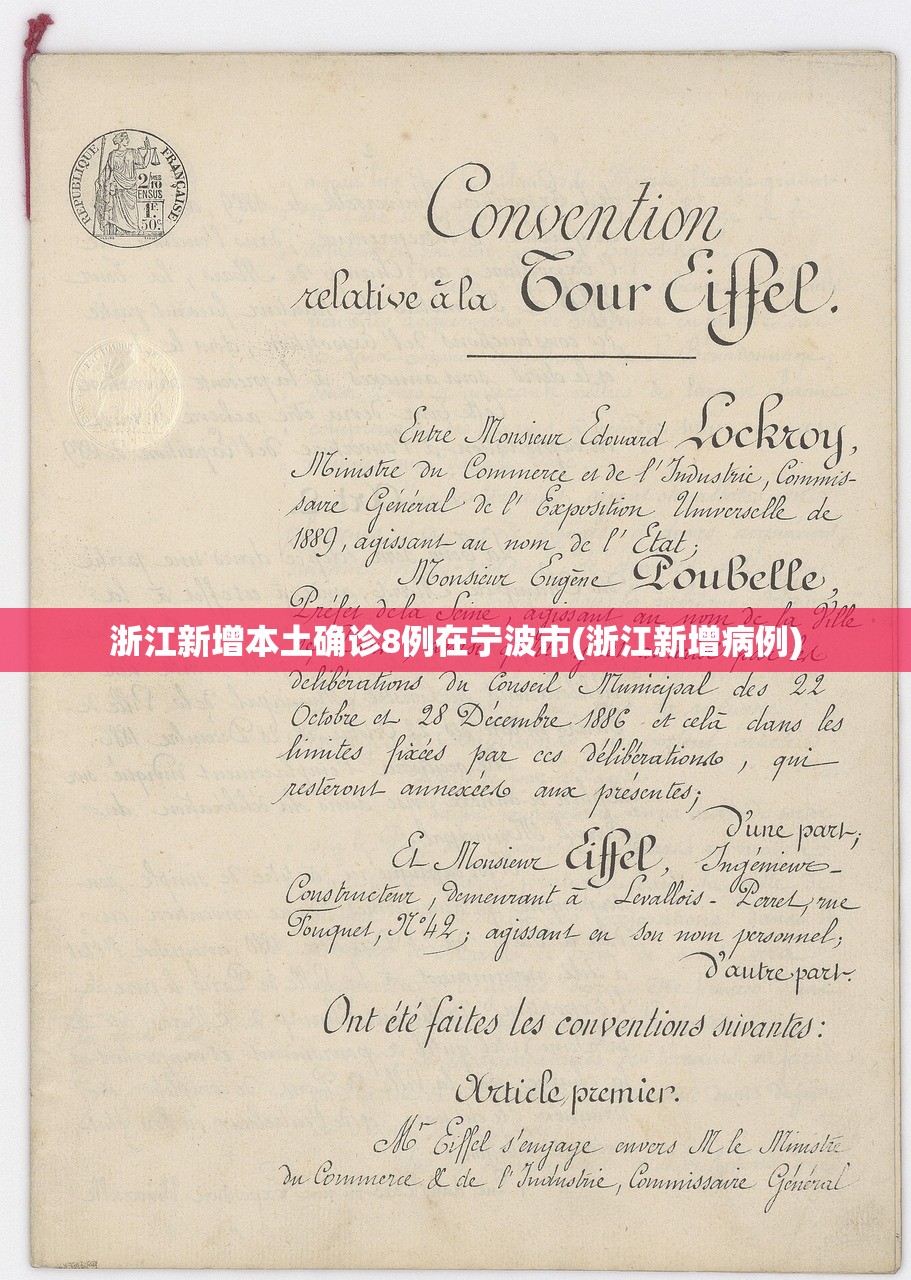 RÉPUBLIQUE FRANÇAISE
2/10
EN SUS
1F.
50c.
Convention
relative à la Tour Eiffel.
Entre Monsieur Edouard Lockroy,
Ministre du Commerce et de l'Industrie, Commis-
saire Général de l'Exposition Universelle de
1889, agissant au nom de l'Etat;
Monsieur Eugène Poubelle,
Préfet de la Seine, agissant au nom de la Ville
浙江新增本土确诊8例在宁波市(浙江新增病例)
par les
délibérations du Conseil Municipal des 22
Octobre et 28 Décembre 1886 et celà dans les
limites fixées par ces délibérations, qui
resteront annexées aux présentes;
d'une part;
Et Monsieur Eiffel, Ingénieur-
Constructeur, demeurant à Levallois-Perret, rue
Fouquet, N° 42; agissant en son nom personnel;
d'autre part.
Ont été faites les conventions suivantes:
Article premier.
Mr Eiffel s'engage envers M le Ministre
du Commerce & de l'Industrie, Commissaire Général